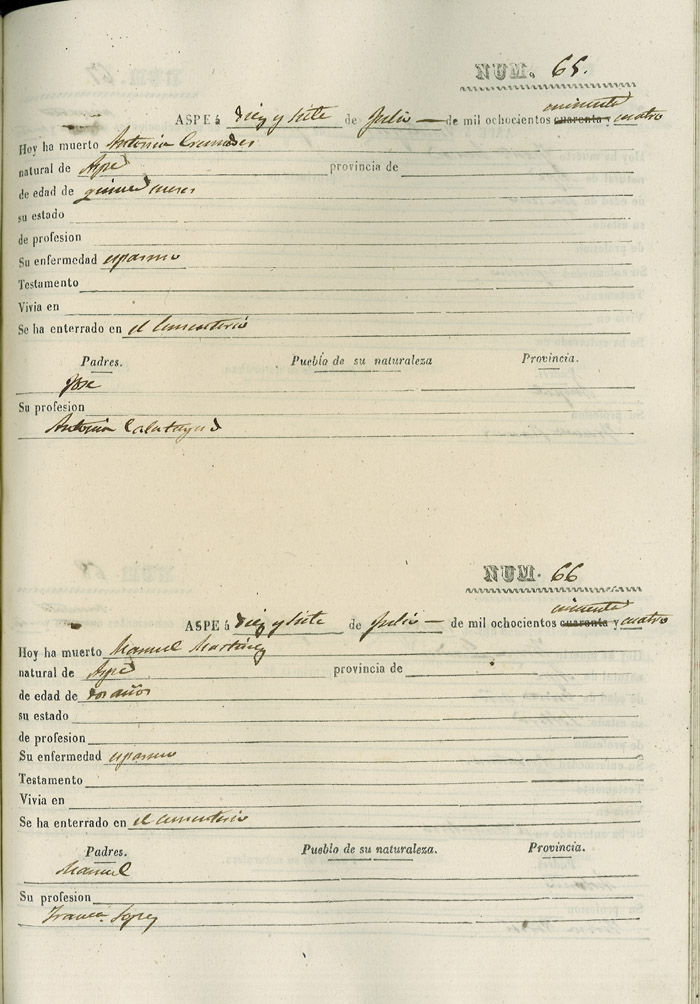 NUM. 65.
cincuenta
ASPE á diez y siete de Julio — de mil ochocientos cuarenta y cuatro
Hoy ha muerto Antonia Cremades
natural de Aspe provincia de
de edad de quince meses
su estado
de profesion
Su enfermedad espasmo
Testamento
Vivia en
Se ha enterrado en el Cementerio
Padres. Pueblo de su naturaleza Provincia.
Jose
Su profesion
Antonia Calatayud
NUM. 66
cincuenta
ASPE á diez y siete de Julio — de mil ochocientos cuarenta y cuatro
Hoy ha muerto Manuel Martinez
natural de Aspe provincia de
de edad de dos años
su estado
de profesion
Su enfermedad espasmo
Testamento
Vivia en
Se ha enterrado en el Cementerio
Padres. Pueblo de su naturaleza. Provincia.
Manuel
Su profesion
Franca.